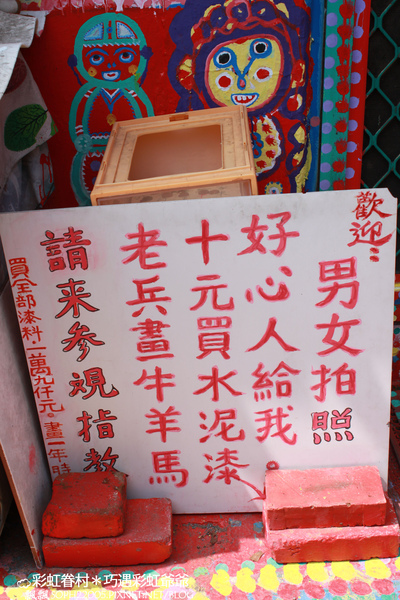 歡迎:
男女拍照
好心人給我
十元買水泥漆
老兵畫牛羊馬
請来參观指教
買全部漆料.一萬九仟元.畫一年時
彩虹眷村*巧遇彩虹爺爺